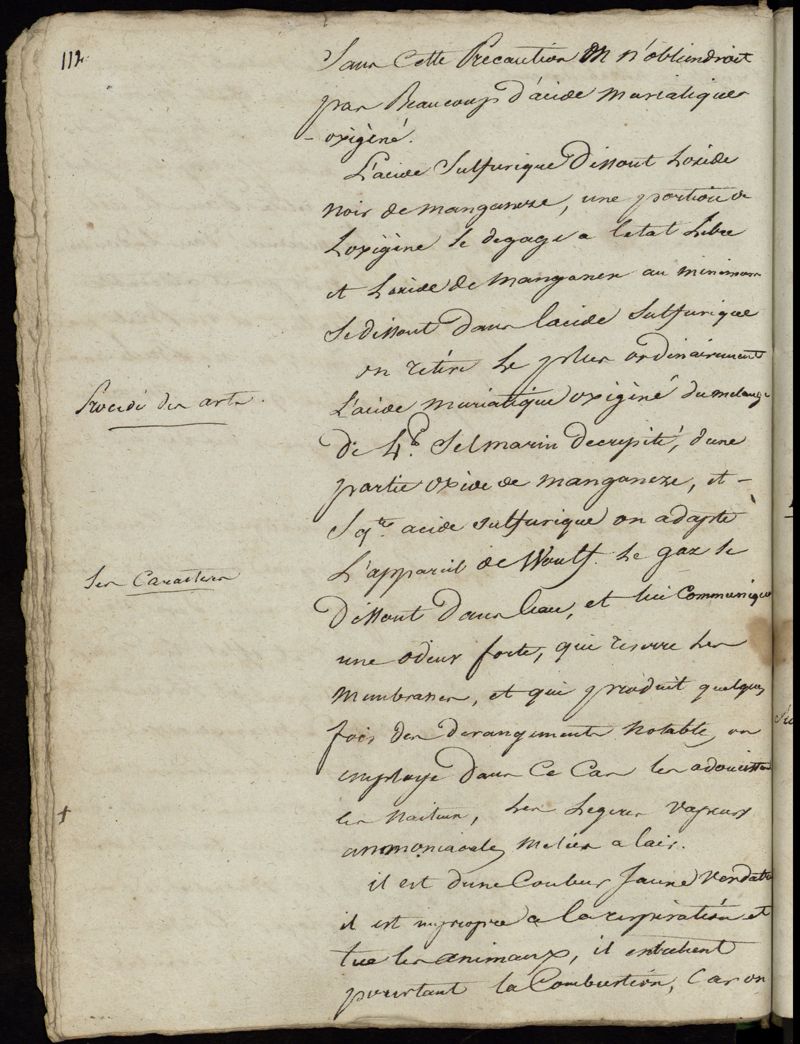 112
Sans Cette Precaution on n'obtiendroit
pas Beaucoup d'acide muriatique
- oxigèné.
L'acide Sulfurique Dissout Loxide
noir de manganeze, une portion de
Loxigène se degage a letat Libre
et Loxide de manganeze au minimum
se dissout Dans lacide sulfurique
on retire Le plus ordinairement
Procédé des arts.
L'acide muriatique oxigèné du melange
De 4p. Sel marin Decrepité, d'une
partie oxide de manganeze, et -
S qte. acide sulfurique on adapte
L'appareil de Woulf. Le gaz se
Ses Caracteres
Dissout Dans leau, et lui Communique
une odeur forte, qui resserre Les
Membranes, et qui produit quelques
fois des derangements Notables, on
employe Dans Ce Cas les adoucissans
+
les Laiteux, Les Legeres vapeurs
ammoniacales Melées a lair.
il est d'une Couleur Jaune Verdatre
il est impropre a la respiration et
tue les animaux, il entretient
pourtant la Combustion, Car on